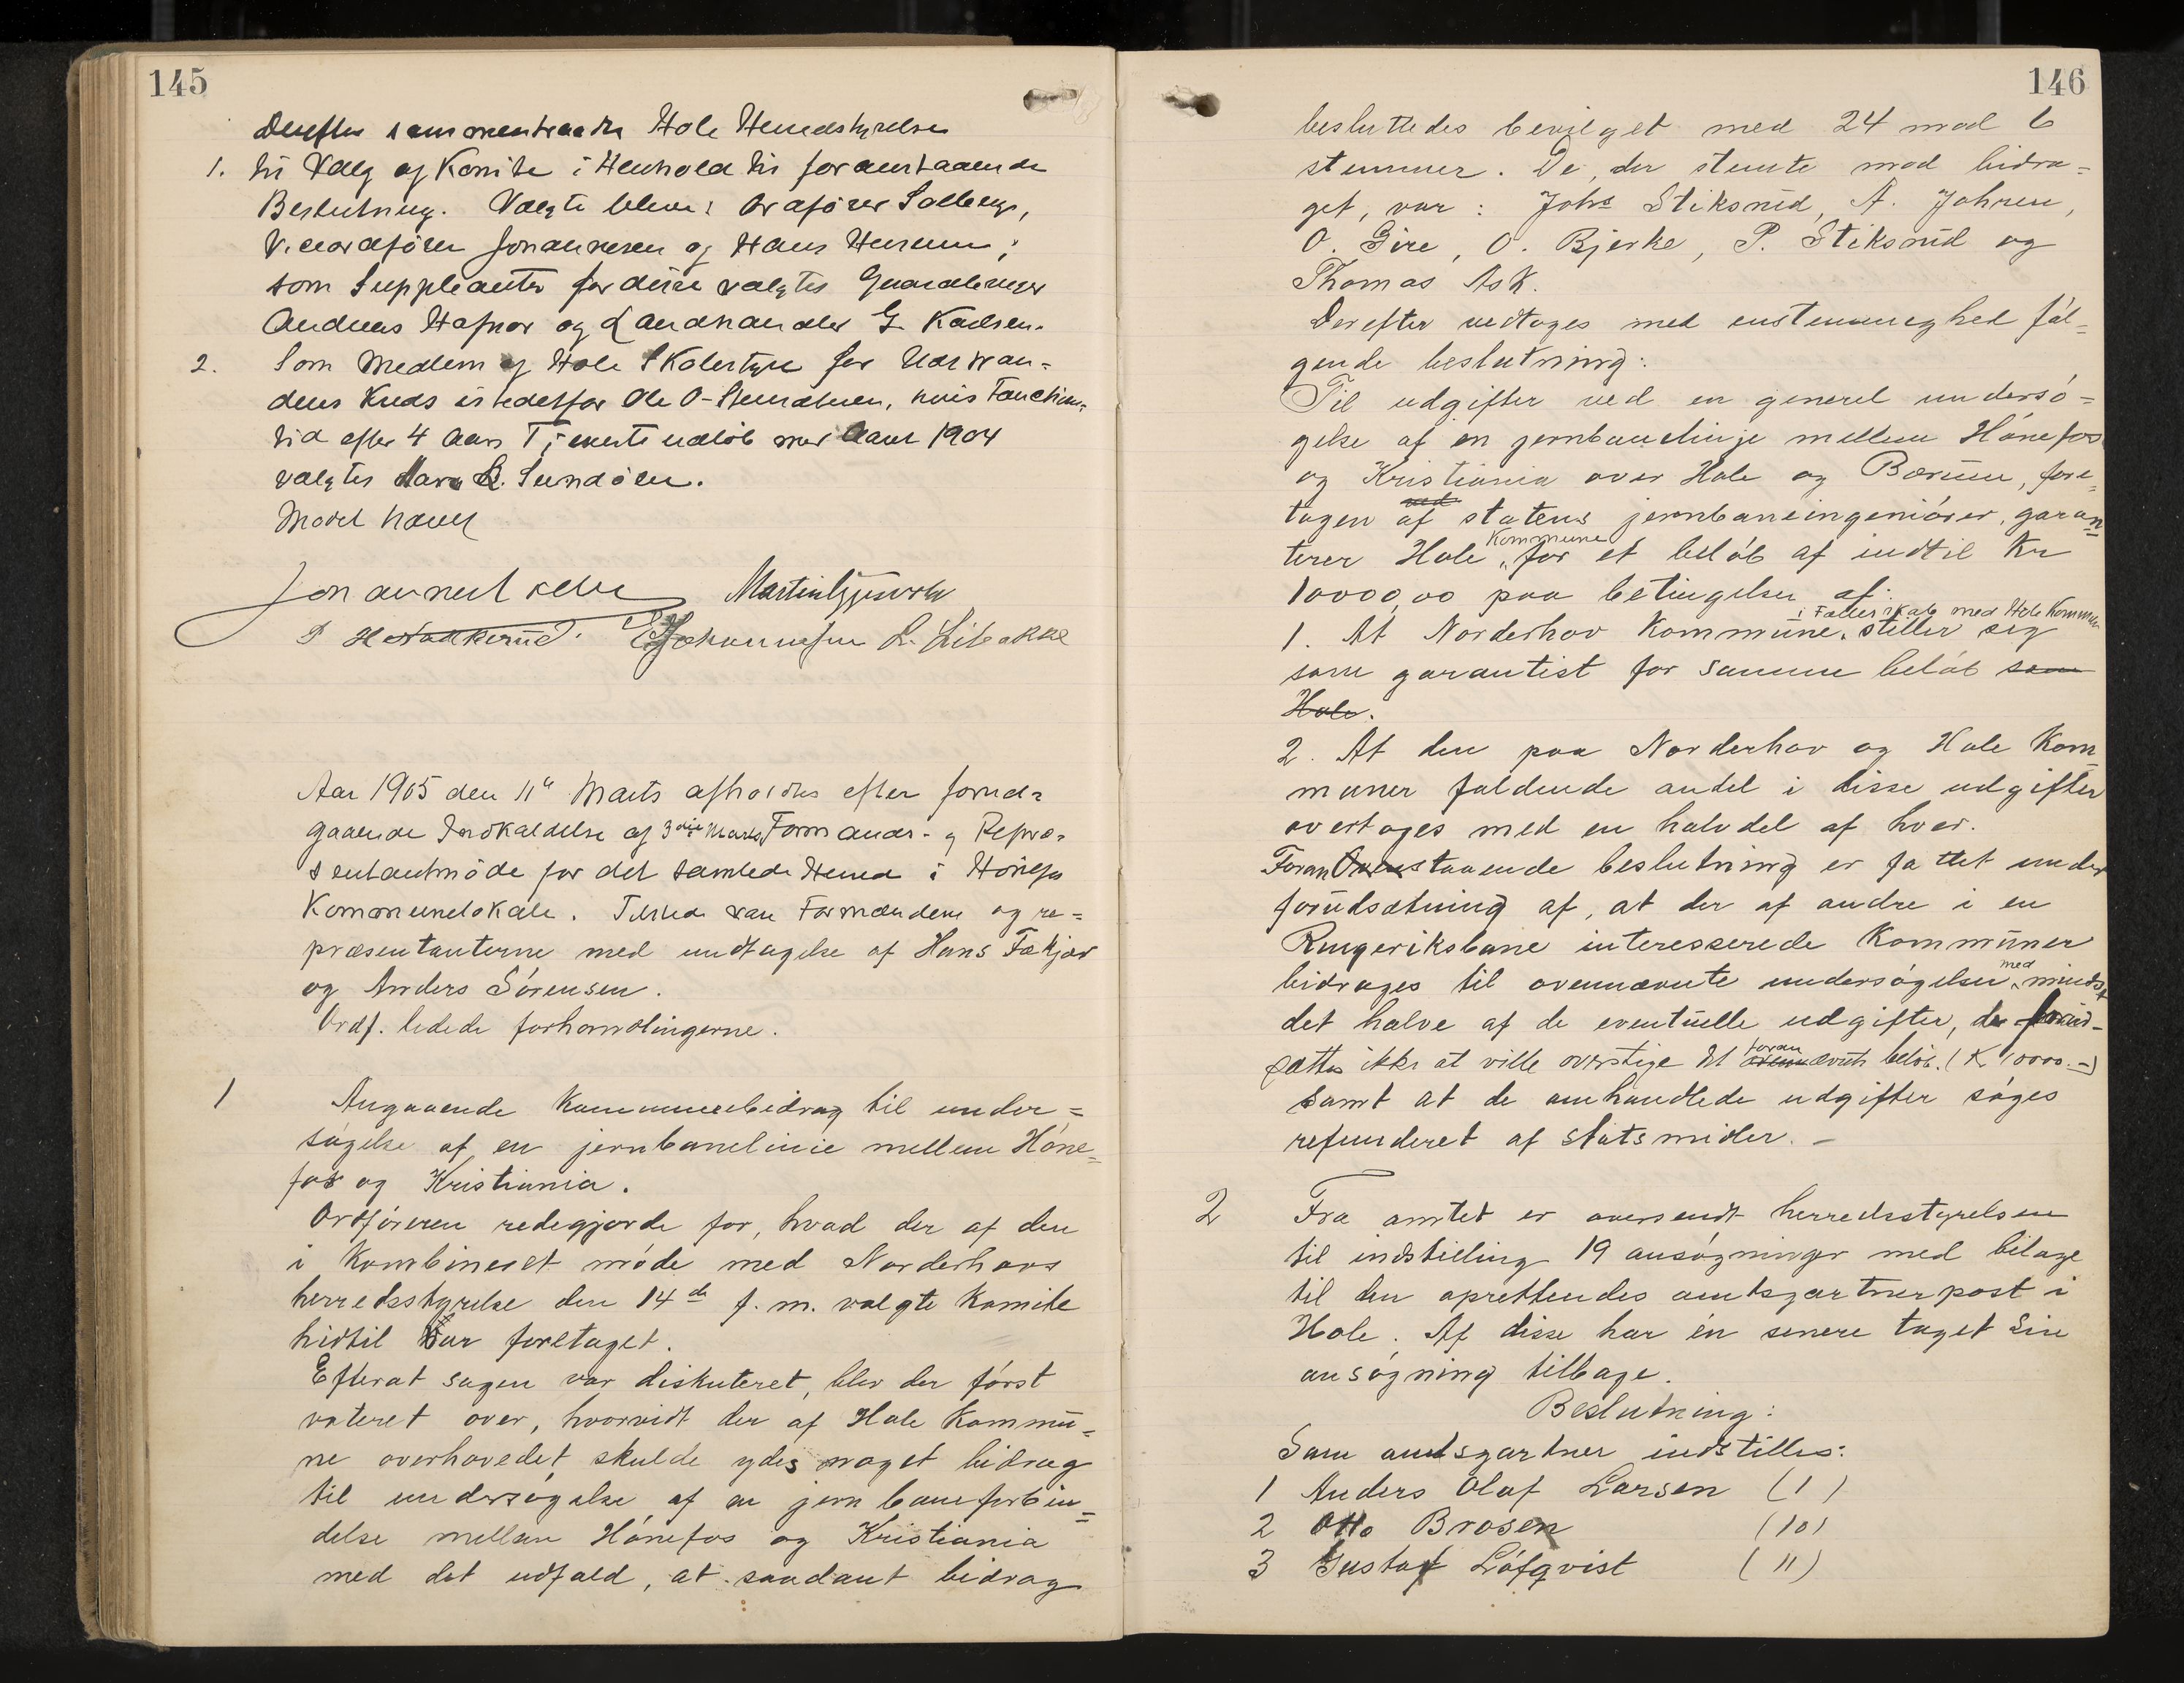 145
Derefter sammentraadte Hole Herredstyrelse
1. til Valg af Komite i Henhold til foranstaaende
Beslutning. Valgte bleve: Ordfører Solberg,
Viceordfører Johannesen og Hans Hurum;
som Suppleanter for disse valgtes Gaardbruger
Andreas Hafnor og Landhandler G. Karlsen.
2. Som Medlem af Hole Skolestyre for
dens Kreds istedetfor Ole O. hvis Funktions-
tid efter 4 Aars Tjeneste udløb med Aaret 1904
valgtes Sundøen.
Mødet hævet
Martin
Johannessen
Aar 1905 den 11te Marts afholdtes efter forud-
gaaende Indkaldelse af 3die Marts Formands- og Repræ-
sentantmøde for det samlede Herred i Hønefos
Kommunelokale. Tilstede vare Formændene og re=
præsentanterne med undtagelse af Hans Fækjær
og Anders Sørensen.
Ordf. ledede forhandlingerne.
1 Angaaende Kommunebidrag til under=
søgelse af en jernbanelinie mellem Høne=
fos og Kristiania.
Ordføreren redegjorde for, hvad der af den
i Kombineret møde med Norderhovs
herredsstyrelse den 14de f. m. valgte Komite
hidtil var foretaget.
Efterat sagen var diskuteret, blev der først
voteret over, hvorvidt der af Hole Kommu=
ne overhovedet skulde ydes noget bidrag
til undersøgelse af en jernbaneforbin=
delse mellem Hønefos og Kristiania
med det udfald, at saadant bidrag
146
besluttedes bevilget med 24 mod 6
stemmer. De, der stemte mod bidra=
get, var: Johs Stiksrud, A. Jahren,
O. Gire, O. Bjerke, P. Stiksrud og
Thomas Ask.
Derefter vedtoges med enstemmighed føl=
gende beslutning:
Til udgifter ved en generel undersø=
gelse af en jernbanelinje mellem Hønefos
og Kristiania over Hole og Bærum, fore=
tagen af statens jernbaneingeniører, garan=
terer Hole Kommune for et beløb af indtil Kr
10000,00 paa betingelse af:
1. At Norderhov Kommune i Fællesskab med Hole Kommune stiller seg
som garantist for samme beløb som
Hole.
2. At den paa Norderhov og Hole Kom=
muner faldende andel i disse udgifter
overtages med en halvdel af hver.
Foranstaaende beslutning er fattet under
forudsætning af, at der af andre i en
Ringeriksbane interesserede Kommuner
bidrages til ovennævnte undersøgelser med mindst
det halve af de eventuelle udgifter, der forud-
sættes ikke at ville overstige det forannævnte beløb. (K 10000.-)
Samt at de omhandlede udgifter søges
refunderet af statsmidler. -
2 Fra amtet er oversendt herredsstyrelsen
til indstilling 19 ansøgninger med bilage
til den oprettendes amtsgartnerpost i
Hole. Af disse har én senere taget sin
ansøgning tilbage.
Beslutning:
Som amtsgartner indstilles:
1 Anders Olaf Larsen (1)
2 Otto Brosen (10)
3 Gustaf Löfqvist (11)